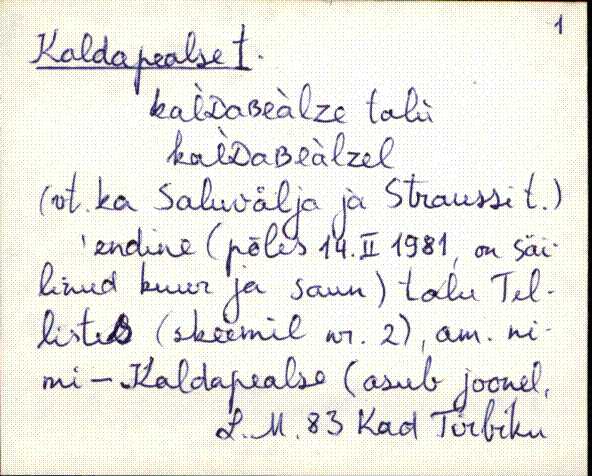 1
Kaldapealse t.
kal̀DaBeàlze talù
kal̀DaBeàlzel
(vt. ka Saluvälja ja Straussi t.)
'endine (põles 14. II 1981, on säi-
linud kuur ja saun) talu Tel-
listes (skeemil nr. 2), am. ni-
mi – Kaldapealse (asub joonel,
L. M. 83 Kad Tirbiku